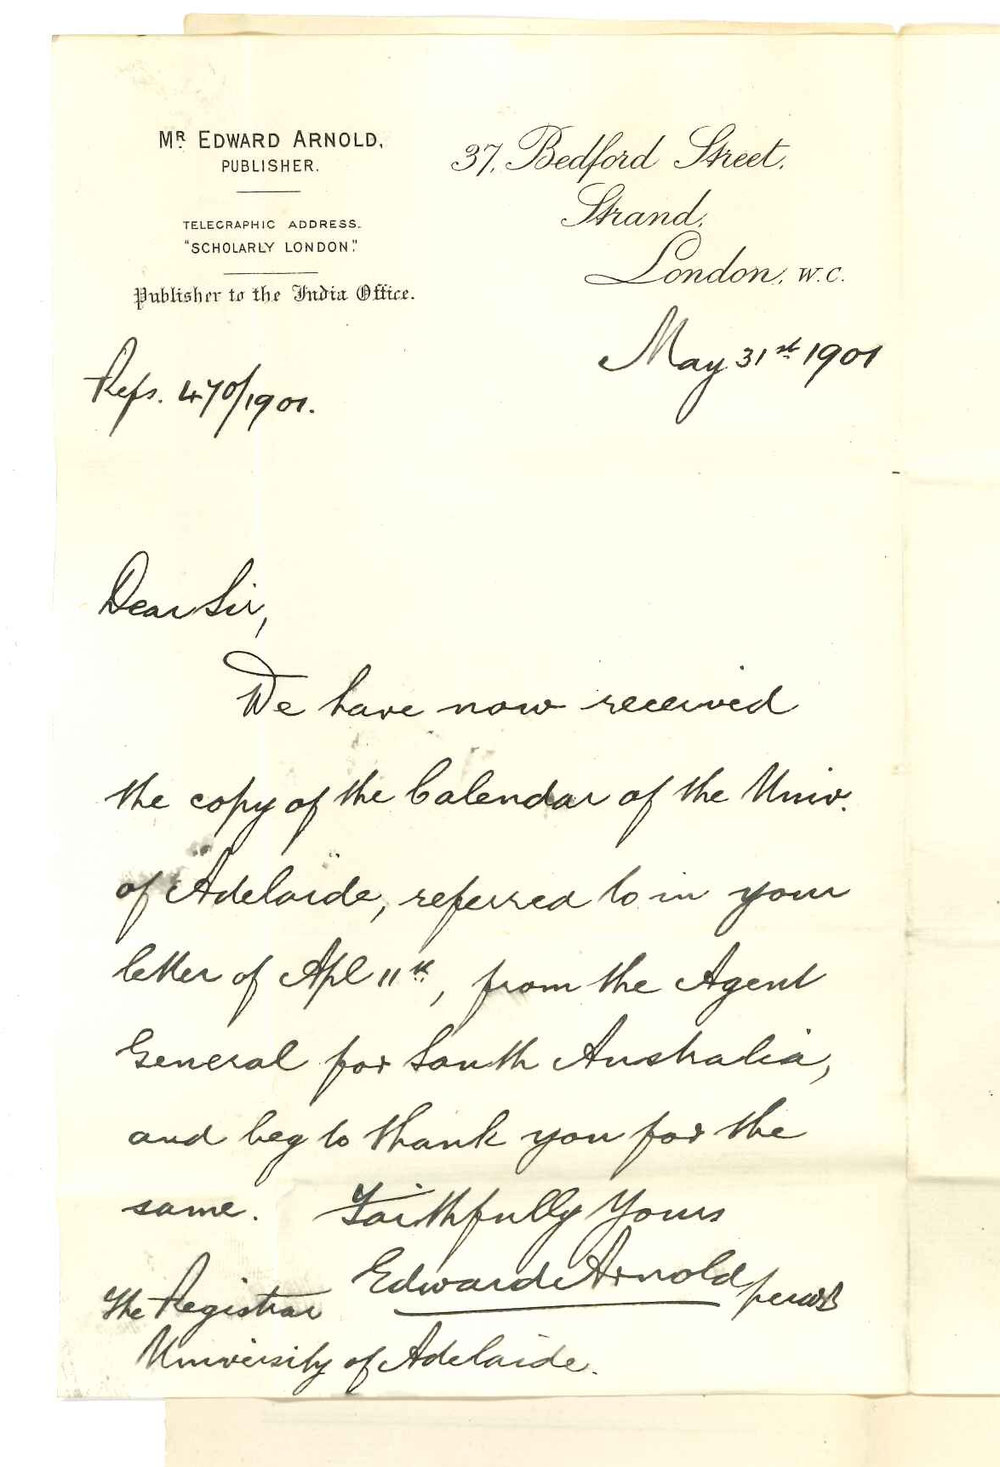 Mr. EDWARD ARNOLD,
PUBLISHER.
TELEGRAPHIC ADDRESS.
"SCHOLARLY LONDON."
Publisher to the India Office.
37, Bedford Street,
Strand,
London, W.C.
May 31st 1901
Refs. 470/1901.
Dear Sir,
We have now received
the copy of the Calendar of the Univ.
of Adelaide, referred to in your
letter of Apl 11th, from the Agent
General for South Australia,
and beg to thank you for the
same. Faithfully Yours
Edward Arnold per
The Registrar
University of Adelaide.